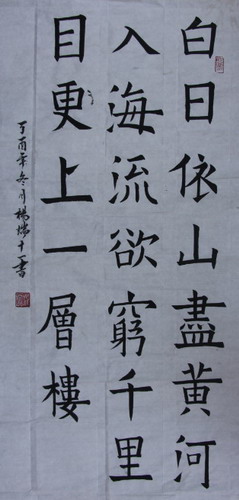 白日依山盡黃河
入海流欲窮千里
目更上一層樓
丁酉年冬月楊